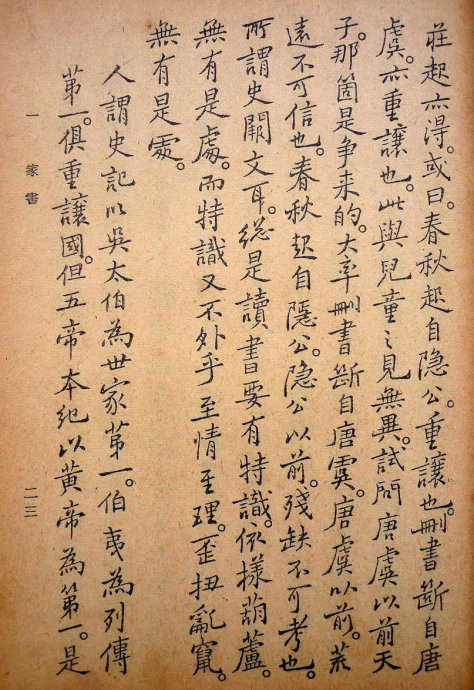 莊起亦得。或曰。春秋起自隐公。重讓也。刪書斷自唐
虞。亦重讓也。此與兒童之見無異。試問唐虞以前天
子。那箇是争来的。大率刪書斷自唐虞。唐虞以前。荒
遠不可信也。春秋起自隱公。隐公以前。殘缺不可考也。
所謂史闕文耳。総是讀書要有特識。依樣葫蘆。
無有是處。而特識又不外乎至情至理。歪扭亂竄。
無有是處。
人謂史記以吳太伯為世家第一。伯夷為列傳
第一。俱重讓國。但五帝本纪以黃帝為第一。是
一 家書
二三